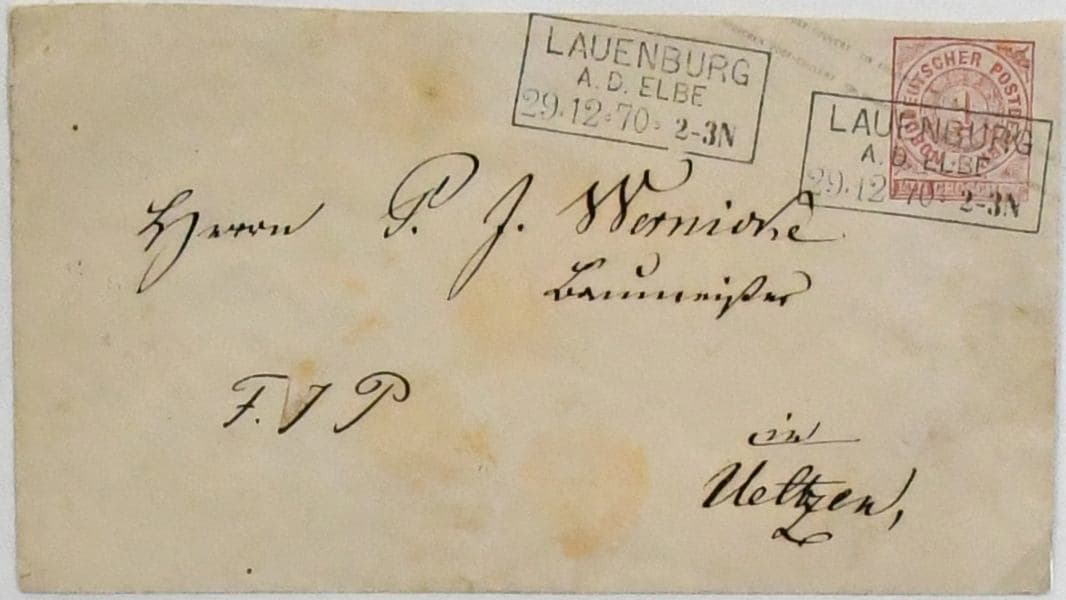 LAUENBURG
A. D. ELBE
29.12.70. 2-3N
LAUENBURG
A. D. ELBE
29.12 70. 2-3N
1
Herrn P. J. Wernicke
Baumeister
F. J P
in
Ueltzen,